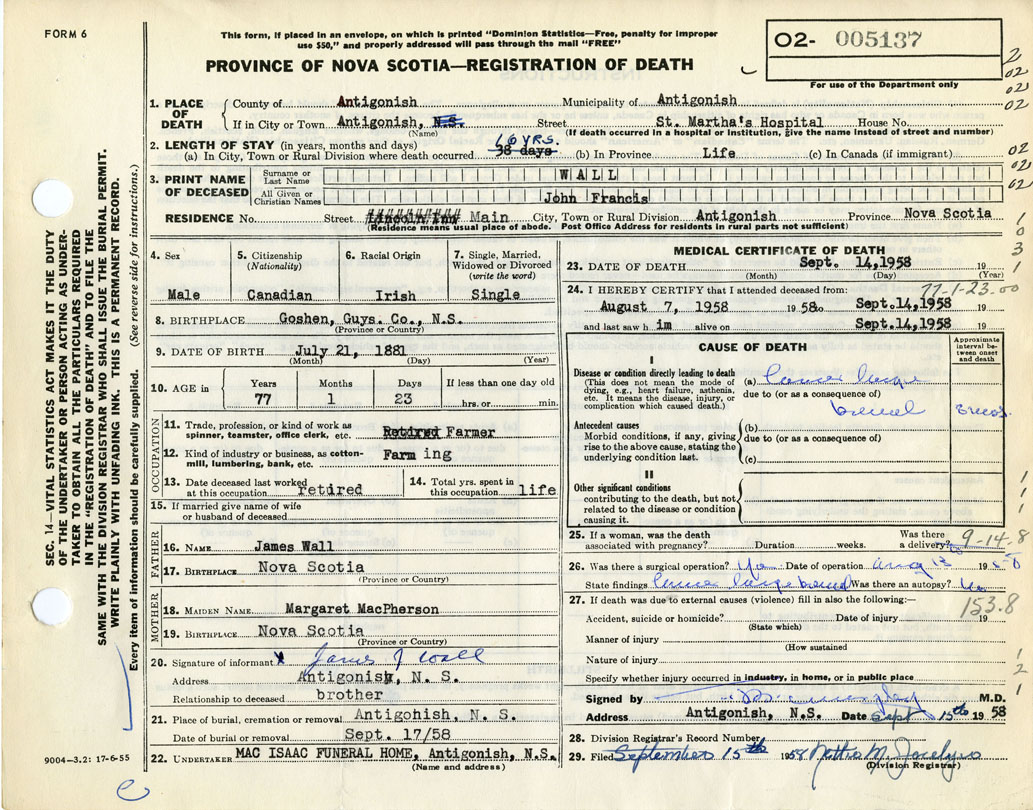 FORM 6
This form, if placed in an envelope, on which is printed "Dominion Statistics—Free, penalty for improper
use $50," and properly addressed will pass through the mail "FREE"
PROVINCE OF NOVA SCOTIA—REGISTRATION OF DEATH
02- 005137
For use of the Department only
1. PLACE OF DEATH
County of Antigonish Municipality of Antigonish
If in City or Town Antigonish, N.S. Street St. Martha's Hospital House No.
(Name) (If death occurred in a hospital or institution, give the name instead of street and number)
2. LENGTH OF STAY (in years, months and days) 6 YRS.
(a) In City, Town or Rural Division where death occurred 38 days (b) In Province Life (c) In Canada (if immigrant)
3. PRINT NAME OF DECEASED
Surname or Last Name WALL
All Given or Christian Names John Francis
RESIDENCE No. Street Main City, Town or Rural Division Antigonish Province Nova Scotia
(Residence means usual place of abode. Post Office Address for residents in rural parts not sufficient)
4. Sex Male
5. Citizenship (Nationality) Canadian
6. Racial Origin Irish
7. Single, Married, Widowed or Divorced (write the word) Single
8. BIRTHPLACE Goshen, Guys. Co., N.S.
(Province or Country)
9. DATE OF BIRTH July 21, 1881
(Month) (Day) (Year)
10. AGE in Years 77 Months 1 Days 23 If less than one day old hrs. or min.
OCCUPATION
11. Trade, profession, or kind of work as spinner, teamster, office clerk, etc. Retired Farmer
12. Kind of industry or business, as cotton-mill, lumbering, bank, etc. Farm ing
13. Date deceased last worked at this occupation retired
14. Total yrs. spent in this occupation life
15. If married give name of wife or husband of deceased
FATHER
16. NAME James Wall
17. BIRTHPLACE Nova Scotia
(Province or Country)
MOTHER
18. MAIDEN NAME Margaret MacPherson
19. BIRTHPLACE Nova Scotia
(Province or Country)
20. Signature of informant X James J Wall
Address Antigonish, N. S.
Relationship to deceased brother
21. Place of burial, cremation or removal Antigohish, N. S.
Date of burial or removal Sept. 17/58
22. UNDERTAKER MAC ISAAC FUNERAL HOME, Antigonish, N.S.
(Name and address)
MEDICAL CERTIFICATE OF DEATH
23. DATE OF DEATH Sept. 14,1958 19
(Month) (Day)
77-1-23-00
24. I HEREBY CERTIFY that I attended deceased from:
August 7, 1958 1958 Sept.14,1958 19
and last saw h im alive on Sept.14,1958 19
CAUSE OF DEATH
Approximate interval between onset and death
I
Disease or condition directly leading to death
(This does not mean the mode of dying, e.g., heart failure, asthenia, etc. It means the disease, injury, or complication which caused death.)
(a) Cancer large
due to (or as a consequence of)
bowel
Antecedent causes
Morbid conditions, if any, giving rise to the above cause, stating the underlying condition last.
(b)
due to (or as a consequence of)
(c)
II
Other significant conditions
contributing to the death, but not related to the disease or condition causing it.
25. If a woman, was the death associated with pregnancy? Duration weeks. Was there a delivery?
9-14.8
26. Was there a surgical operation? Yes Date of operation Aug 13 19
State findings Cancer large bowel Was there an autopsy? No
27. If death was due to external causes (violence) fill in also the following:—
153.8
Accident, suicide or homicide? Date of injury 19
(State which)
Manner of injury
(How sustained
Nature of injury
Specify whether injury occurred in industry, in home, or in public place
Signed by M.D.
Address Antigonish, N.S. Date Sept 15th 19 58
28. Division Registrar's Record Number
29. Filed September 15th 1958 Nettie M. Jocelyn
(Division Registrar)
SEC. 14—VITAL STATISTICS ACT MAKES IT THE DUTY
OF THE UNDERTAKER OR PERSON ACTING AS UNDER-
TAKER TO OBTAIN ALL THE PARTICULARS REQUIRED
IN THE "REGISTRATION OF DEATH" AND TO FILE THE
SAME WITH THE DIVISION REGISTRAR WHO SHALL ISSUE THE BURIAL PERMIT.
WRITE PLAINLY WITH UNFADING INK. THIS IS A PERMANENT RECORD.
Every item of information should be carefully supplied. (See reverse side for instructions.)
9004—3.2: 17-6-55